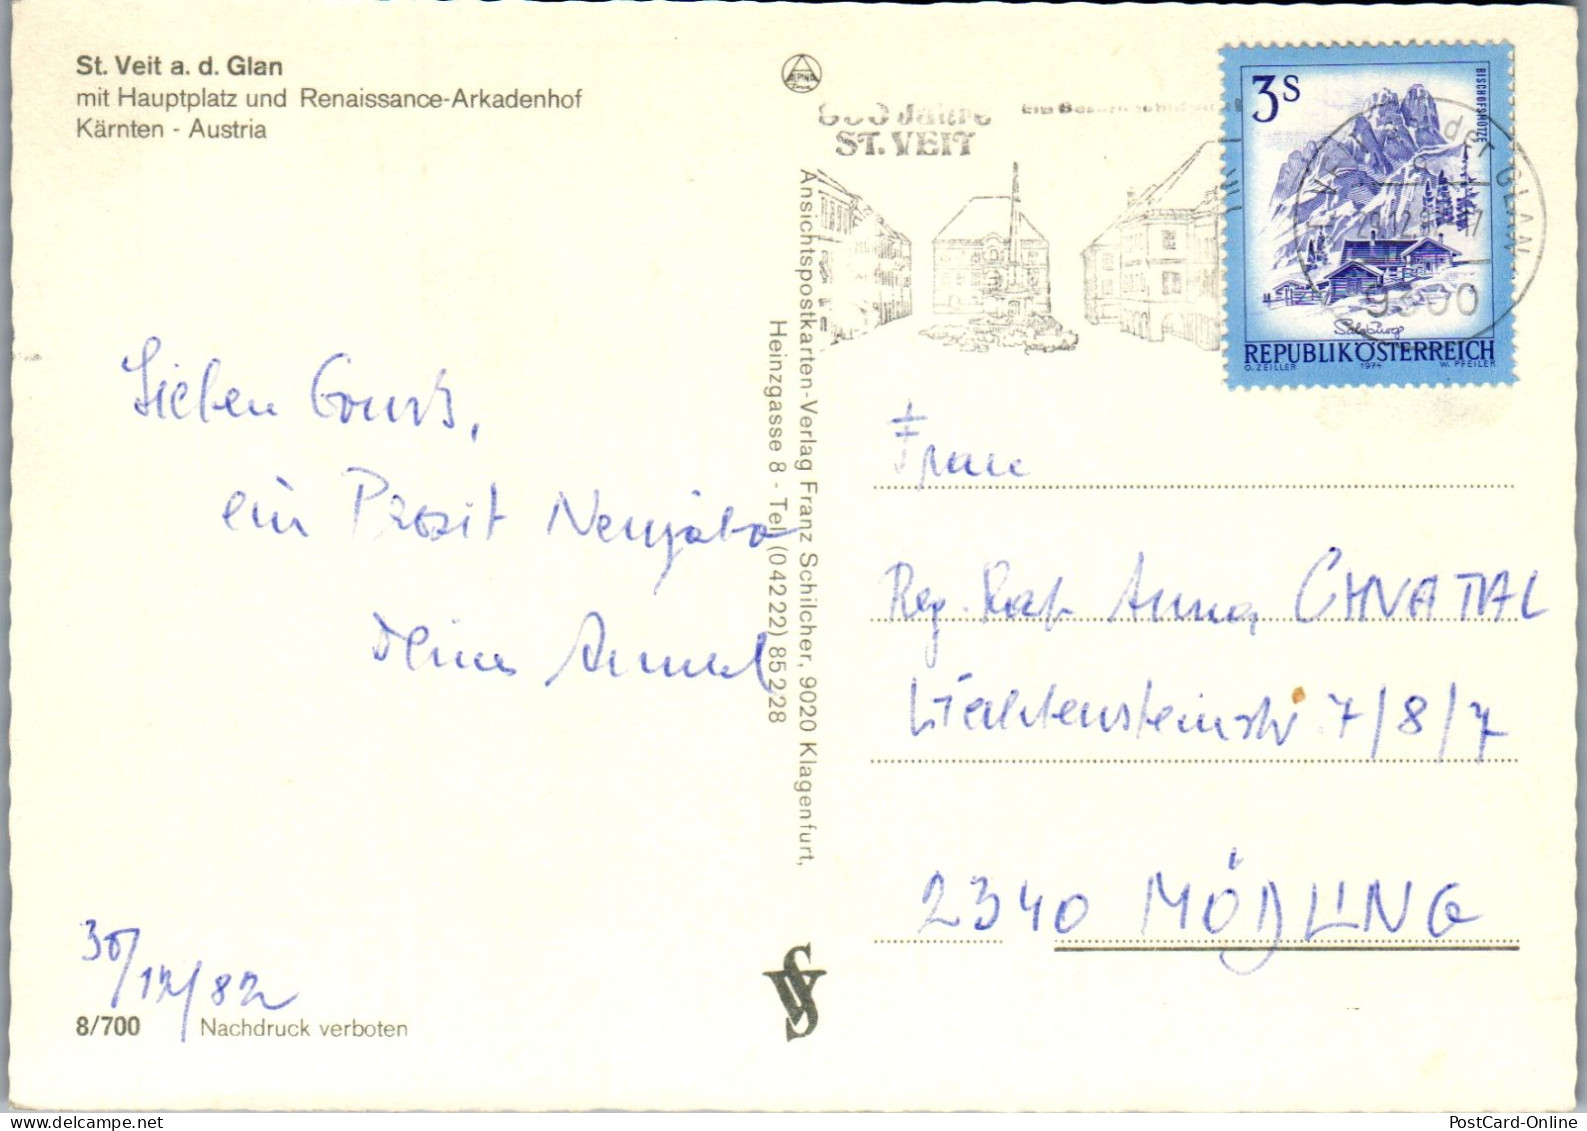 St. Veit a. d. Glan
mit Hauptplatz und Renaissance-Arkadenhof
Kärnten - Austria
Lieben Gruß,
ein Prosit Neujahr
Deine
30/12/82
8/700 Nachdruck verboten
Ansichtspostkarten-Verlag Franz Schilcher, 9020 Klagenfurt,
Heinzgasse 8 - Tel. (04222) 85228
Jahre
ST. VEIT
3S
BISCHOFSMÜTZE
GLAN
9300
Salzburg
REPUBLIK ÖSTERREICH
O. ZEILLER 1974 W. PFEILER
Frau
Reg. Rat Anna CHVATAL
Liechtensteinstr. 7/8/7
2340 MÖDLING
PostCard-Online